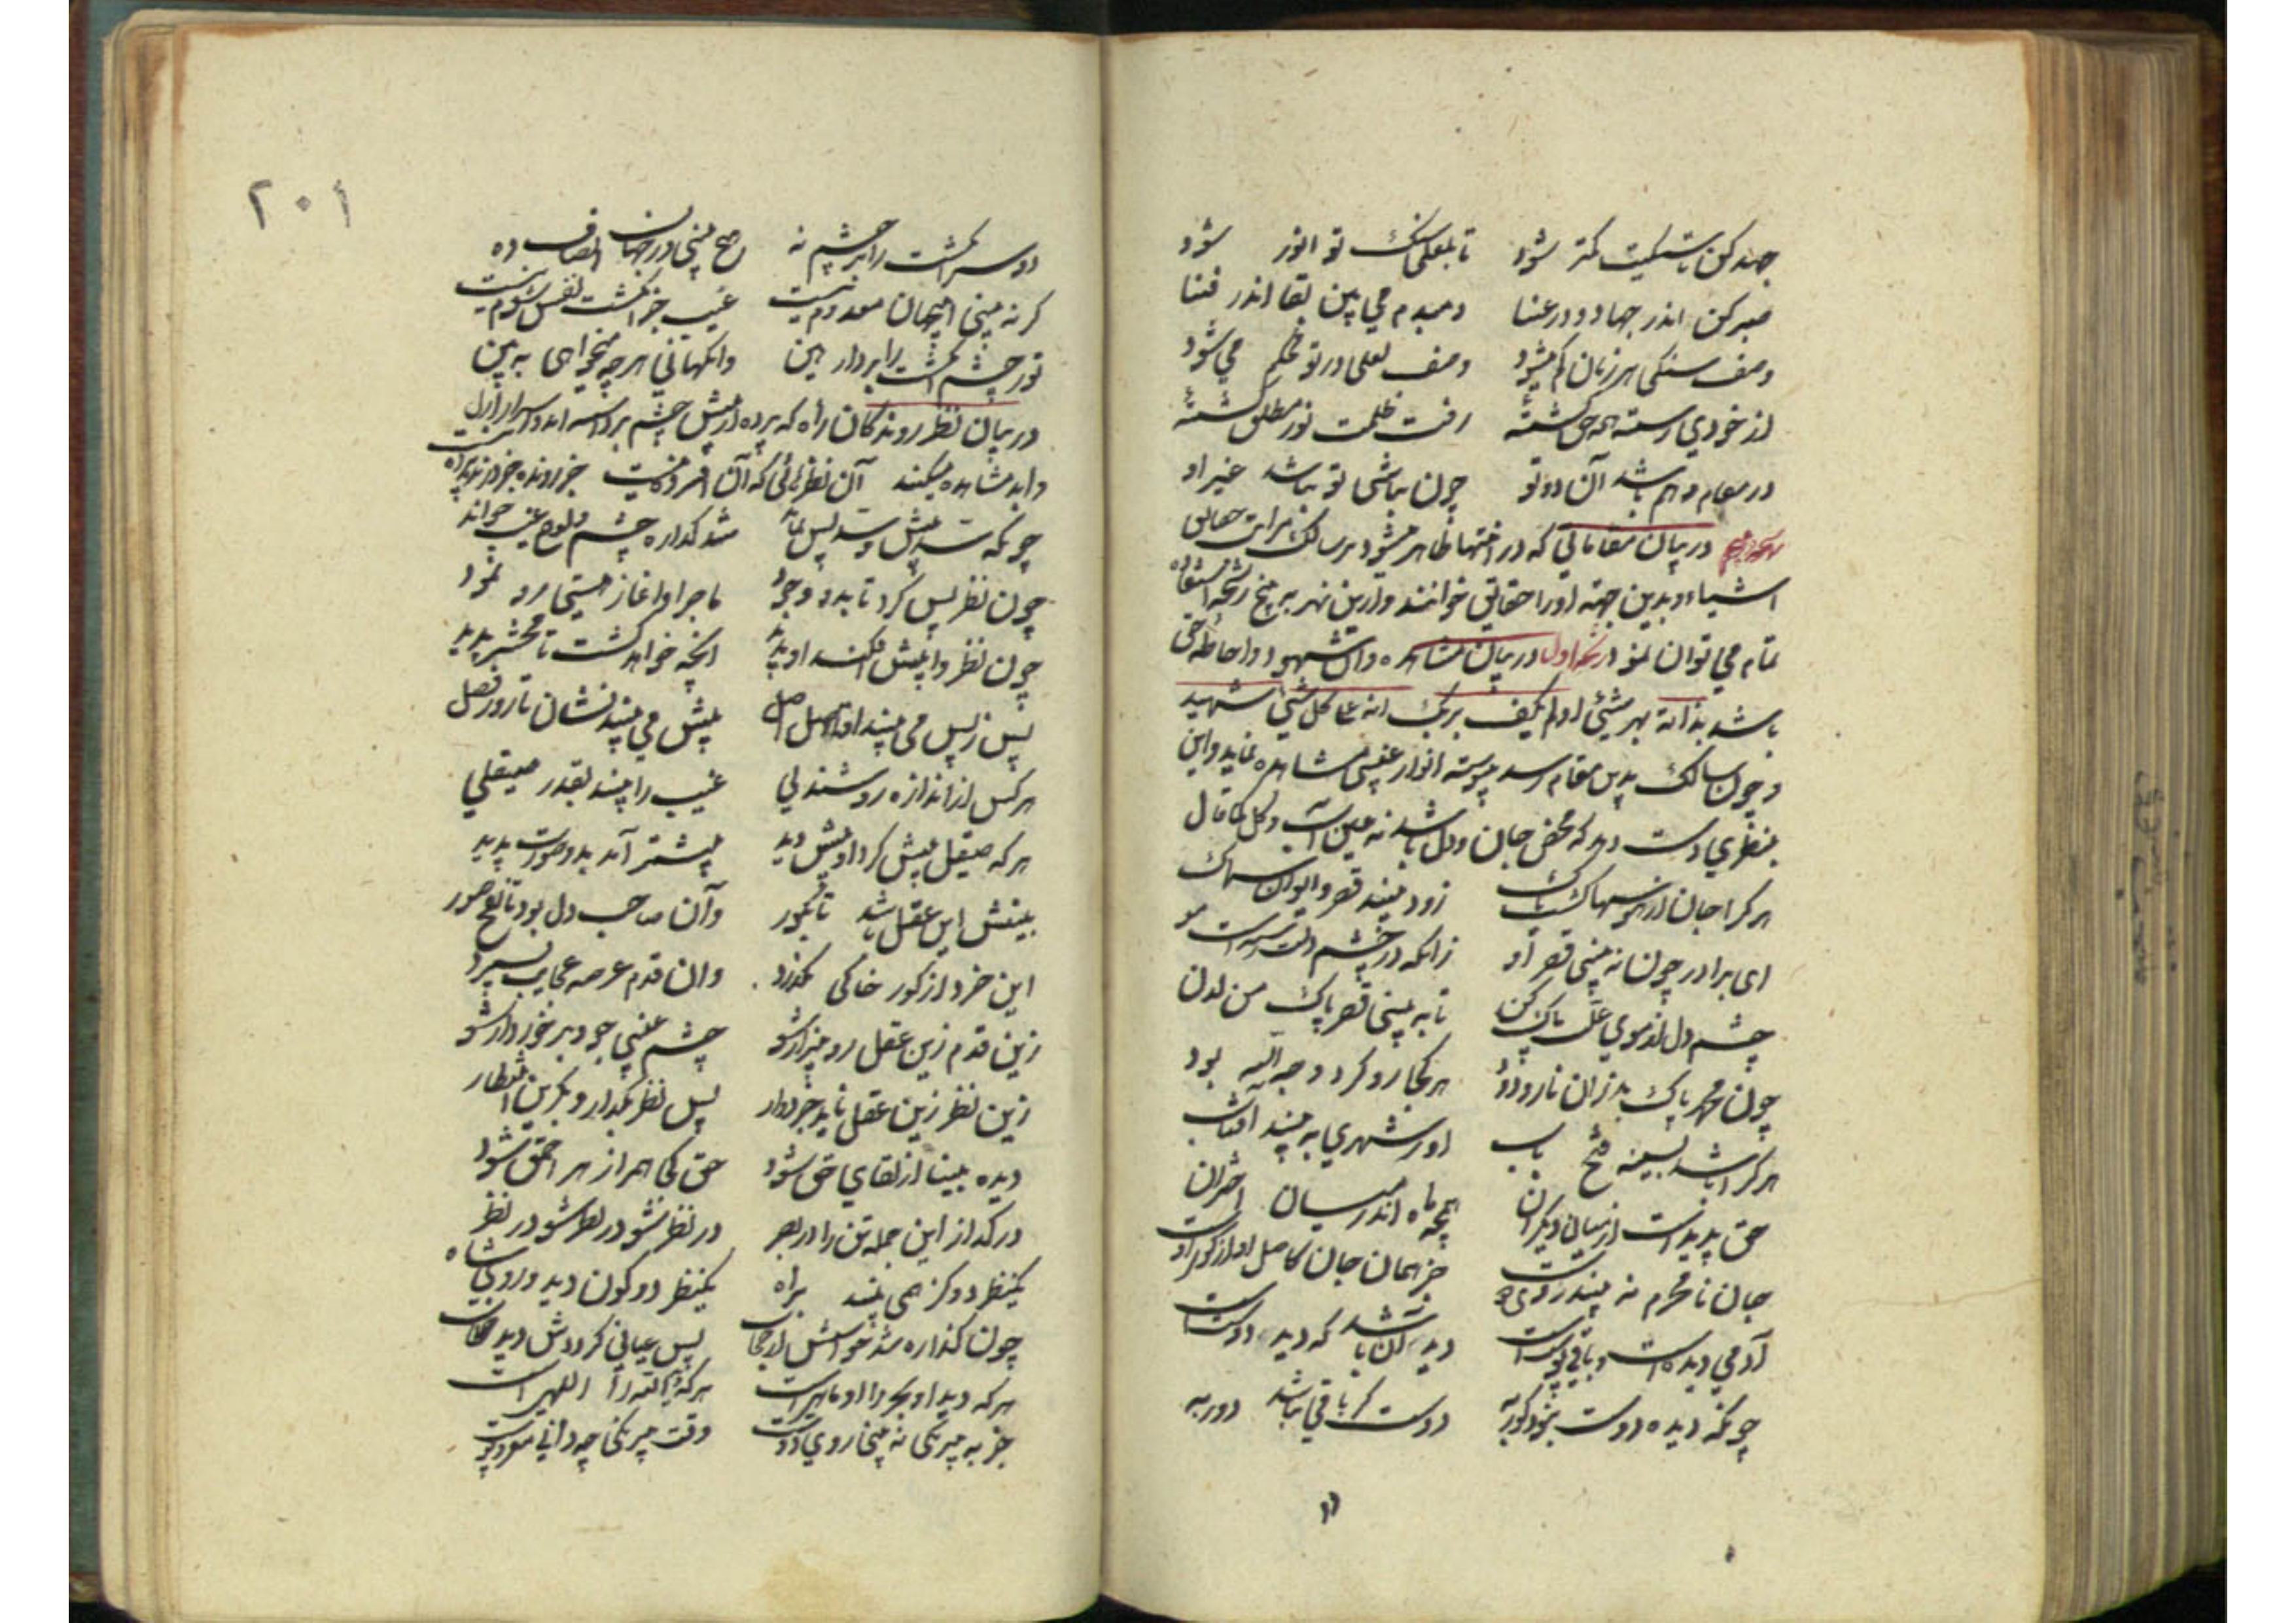 جهد کن تا سنگیت کمتر شود تا بلعلی سنگ تو انور شود
صبر کن اندر جهاد و در عنا دمبدم می بین بقا اندر فنا
وصف سنگی هر زمان کم میشود وصف لعلی در تو محکم می شود
از خودی رسته همه حق گشتهٔ رفت ظلمت نور مطلق گشتهٔ
در مقام و هم باشد آن دو تو چون نباشی تو نباشد غیر او
در بیان مقاماتی که در انتها ظاهر میشود بر سالک
اشیاء و بدین جهته او را حقایق خوانند و ازین نهر به پنج رشحه استفاده
تمام می توان نمود رشحه اول در بیان مشاهده و آن شهود
باشد بذاته بهر شیٔ اولم یکف بربک انه علی کل شیٔ شهید
و چون سالک بدین مقام رسد پیوسته انوار غیبی مشاهده نماید و این
بنظری دست دهد که محض جان و دل باشد نه عین آب و گل کما قال
هر کرا جان از هوسها گشت پاک زود بیند قصر و ایوان سماک
ای برادر چون نه بینی قصر او زانکه در چشم دلت رسته است مو
چشم دل از موی علت پاک کن تا به بینی قصر پاک من لدن
چون محمد پاک بد زان نار و دود هر کجا رو کرد وجه الله بود
هر کرا باشد بسینه فتح باب او ز هر شهری به بیند آفتاب
حق پدیدست از میان دیگران همچو ماه اندر میان اختران
جان نامحرم نه بیند روی دوست جز همان جان کاصل او از کوی اوست
آدمی دیده است و باقی پوست است دید آن باشد که دید دوست است
چونکه دیده دوست نبود کور به دوست کر باقی نباشد دور به
۲۰۱
دو سر انگشت را بر چشم نه هیچ بینی در جهان انصاف ده
کر نه بینی این جهان معدوم نیست عیب جز انگشت نفس شوم نیست
تو ز چشم انگشت را بردار هین وانگهانی هر چه میخواهی به بین
در بیان نظر روندگان راه که پرده از پیش چشم برداشته اند و اسرار ازل
و ابد مشاهده میکنند آن نظرهائی که آن افسرده نیست جز رونده جز درنده پرده نیست
چونکه سد پیش و سد پس نماند شد گذاره چشم و لوح غیب خواند
چون نظر پس کرد تا بدو وجود ماجرا و آغاز هستی رو نمود
چون نظر در پیش افکند او بدید آنچه خواهد گشت تا محشر پدید
پس ز پس می بیند او تا اصل اصل پیش می بیند نشان تا روز فصل
هر کس از اندازه روشندلی غیب را بیند بقدر صیقلی
هر که صیقل بیش کرد او بیش دید بیشتر آمد بدو صورت پدید
بینش این عقل باشد تا بگور وآن صاحب دل بود تا نفخ صور
این خرد از کور خاکی نگذرد وان قدم عرصه عجایب بسپرد
زین قدم زین عقل رو بیزار شو چشم غیبی جو و برخوردار شو
زین نظر زین عقل ناید جز دوار پس نظر بگذار و بگزین انتظار
دیده بینا از لقای حق شود حق کجا همراز هر احمق شود
در گداز این جمله تن را در بصر در نظر شو در نظر شو در نظر
یکنظر دو گز همی بیند براه یکنظر دو کون دید و روی شاه
چون گذاره شد حواسش از حجاب پس عیانی گرددش دید
هر که دید او بحر را او ماهی است هر که دید الله را اللهی است